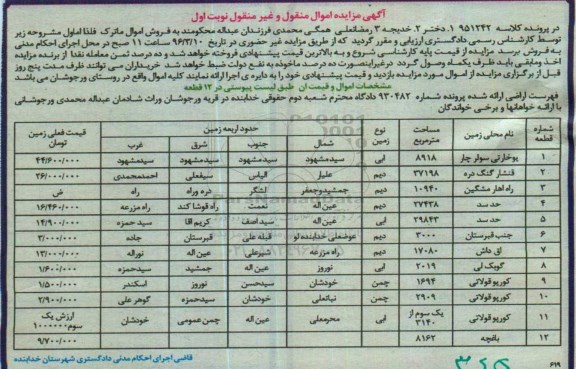 آگهی مزایده اموال منقول و غیر منقول نوبت اول
در پرونده کلاسه ۹۵۱۲۴۲ ۱.دختر ۲.خدیجه ۳.رمضانعلی همگی محمدی فرزندان عبداله محکومند به فروش اموال ماترک فلذا اموال مشروحه زیر
توسط کارشناس رسمی دادگستری ارزیابی و مقرر گردید که از طریق مزایده غیر حضوری در تاریخ ۹۶/۳/۱۰ ساعت ۱۱ صبح در محل اجرای احکام مدنی
به فروش برسد مزایده از قیمت پایه کارشناسی شروع و به بالاترین قیمت پیشنهادی فروخته خواهد شد و ده درصد ثمن معامله نقدا از برنده مزایده
اخذ ومابقی باید ظرف یکماه وصول گردد درغیراینصورت ده درصد ماخوذه به نفع دولت ضبط خواهد شد خریداران می توانند ظرف مدت پنج روز
قبل از برگزاری مزایده از اموال مورد مزایده بازدید و قیمت پیشنهادی خود را به دایره ی اجرا ارائه نمایند کلیه اموال واقع در روستای ورجوشان می باشد
مشخصات اموال و قیمت آن طبق لیست پیوستی در ۱۲ قطعه
فهرست اراضی ارائه شده پرونده شماره ۹۳۰۴۸۲ دادگاه محترم شعبه دوم حقوقی خدابنده در قریه ورجوشان وراث شادمان عبداله محمدی ورجوشانی
با ارائه خواهانها و برخی خواندگان
شماره قطعه نام محلی زمین مساحت مترمربع نوع زمین حدود اربعه زمین قیمت فعلی زمین تومان
شمال جنوب شرق غرب
۱ یوخارتی سولار چار ۸۹۱۸ ابی سیدمشهود سیدمشهود سیدمشهود سیدمشهود ۴۴/۶۰۰/۰۰۰
۲ قنشار گنگ دره ۳۷۱۹۸ دیم علیار الیاس سیفعلی احمدمحمدی ۲۶/۰۰۰/۰۰۰
۳ راه اهار مشگین ۱۰۹۴۰ دیم جمشیدوجعفر لشگر دره وراه راه
۴ حد سد ۲۷۴۳۸ دیم عین اله نعمت راه قوشا کند راه مزرعه ۱۶/۴۶۰/۰۰۰
۵ حد سد ۲۹۸۴۳ ابی عین اله سیداصف کریم اقا سید حمزه ۱۴/۹۰۰/۰۰۰
۶ جنب قبرستان ۳۰۰۰ دیم عوضعلی خداینده لو قبله علی قبرستان جاده ۳/۰۰۰/۰۰۰
۷ اق داش ۱۷۰۸۰ دیم راه مزرعه شیرعلی عین اله نوراله ۱۳/۰۰۰/۰۰۰
۸ گویک لی ۲۰۱۹ ابی نوروز عین اله جمشید سیدحمزه ۱/۶۰۰/۰۰۰
۹ کورپو قولاثی ۱۶۹۴ چمن خودشان سیدحسن نوروز اسکندر ۱/۵۰۰/۰۰۰
۱۰ کورپو قولاثی ۲۹۰۹ چمن نباتعلی خودشان سیدحمزه گوهر علی ۲/۹۰۰/۰۰۰
۱۱ کورپو قولاتی یک سوم از ۳۱۴۰ ابی محرمعلی عین اله چمن عمومی خودشان ارزش یک سوم ۱۰۰۰۰۰۰
۱۲ باغچه ۸۱۶۲ ۹/۷۰۰/۰۰۰
قاضی اجرای احکام مدنی دادگستری شهرستان خدابنده
۶۱۹